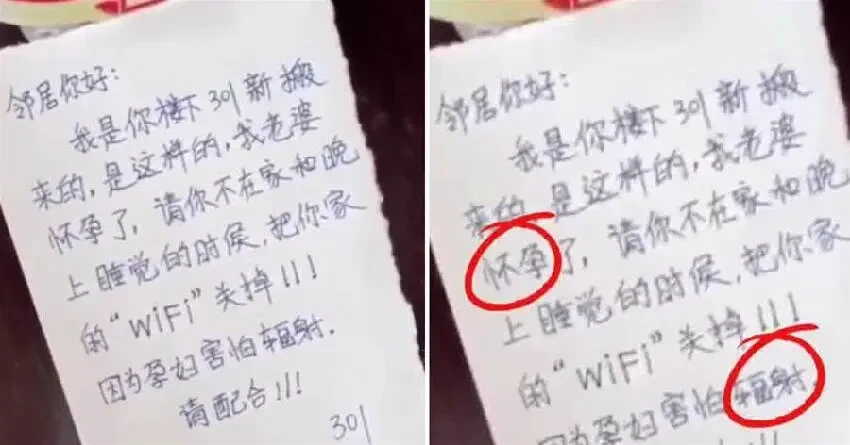 邻居你好：
我是你楼下301新搬
来的，是这样的，我老婆
怀孕了，请你不在家和晚
上睡觉的时候，把你家
的“WiFi”关掉!!!
因为孕妇害怕辐射.
请配合!!!
301
邻居你好：
我是你楼下301新搬
来的，是这样的，我老婆
怀孕了，请你不在家和晚
上睡觉的时候，把你家
的“WiFi”关掉!!!
因为孕妇害怕辐射.